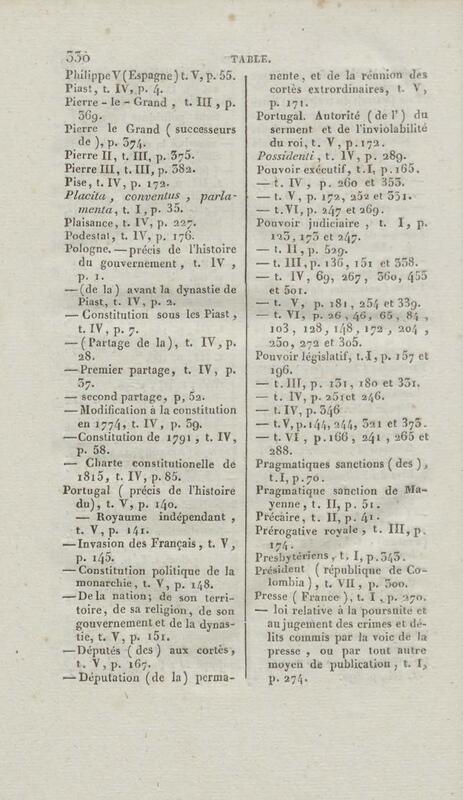 336 TABLE.
Philippe V (Espagne) t. V, p. 55.
Piast, t. IV, p. 4.
Pierre-le-Grand, t. III, p.
369.
Pierre le Grand (successeurs
de), p. 374.
Pierre II, t. III, p. 375.
Pierre III, t. III, p. 382.
Pise, t. IV, p. 172.
Placita, conventus, parla-
menta, t. I, p. 35.
Plaisance, t. IV, p. 227.
Podestat, t. IV, p. 176.
Pologne. — précis de l'histoire
du gouvernement, t. IV,
p. 1.
— (de la) avant la dynastie de
Piast, t. IV, p. 2.
— Constitution sous les Piast,
t. IV, p. 7.
— (Partage de la), t. IV, p.
28.
— Premier partage, t. IV, p.
37.
— second partage, p, 52.
— Modification à la constitution
en 1774, t. IV, p. 39.
— Constitution de 1791, t. IV,
p. 58.
— Charte constitutionelle de
1815, t. IV, p. 85.
Portugal (précis de l'histoire
du), t. V, p. 140.
— Royaume indépendant,
t. V, p. 141.
— Invasion des Français, t. V,
p. 145.
— Constitution politique de la
monarchie, t. V, p. 148.
— De la nation; de son terri-
toire, de sa religion, de son
gouvernement et de la dynas-
tie, t. V, p. 151.
— Députés (des) aux cortès,
t. V, p. 167.
— Députation (de la) perma-
nente, et de la réunion des
cortès extrordinaires, t. V,
p. 171.
Portugal. Autorité (de l') du
serment et de l'inviolabilité
du roi, t. V, p. 172.
Possidenti, t. IV, p. 289.
Pouvoir exécutif, t. I, p. 165.
— t. IV, p. 260 et 353.
— t. V, p. 172, 252 et 331.
— t. VI, p. 247 et 269.
Pouvoir judiciaire, t. I, p.
123, 173 et 247.
— t. II, p. 529.
— t. III, p. 136, 151 et 338.
— t. IV, 69, 267, 360, 455
et 501.
— t. V, p. 181, 254 et 339.
— t. VI, p. 26, 46, 65, 84,
103, 128, 148, 172, 204,
250, 272 et 305.
Pouvoir législatif, t. I, p. 157 et
196.
— t. III, p. 131, 180 et 331.
— t. IV, p. 251 et 246.
— t. IV, p. 346
— t. V, p. 144, 244, 321 et 373.
— t. VI, p. 166, 241, 265 et
288.
Pragmatiques sanctions (des),
t. I, p. 70.
Pragmatique sanction de Ma-
yenne, t. II, p. 51.
Précaire, t. II, p. 41.
Prérogative royale, t. III, p.
174.
Presbytériens, t. I, p. 343.
Président (république de Co-
lombia), t. VII, p. 300.
Presse (France), t. I, p. 270.
— loi relative à la poursuite et
au jugement des crimes et dé-
lits commis par la voie de la
presse, ou par tout autre
moyen de publication, t. I,
p. 274.